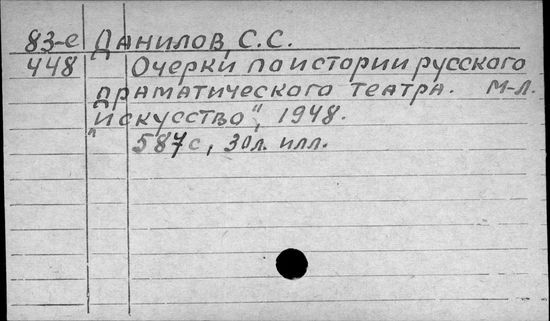 83-е Данилов, С.С.
448 Очерки по истории русского
драматического театра. М-Л.
"Искусство", 1948.
587 с, 30л. илл.